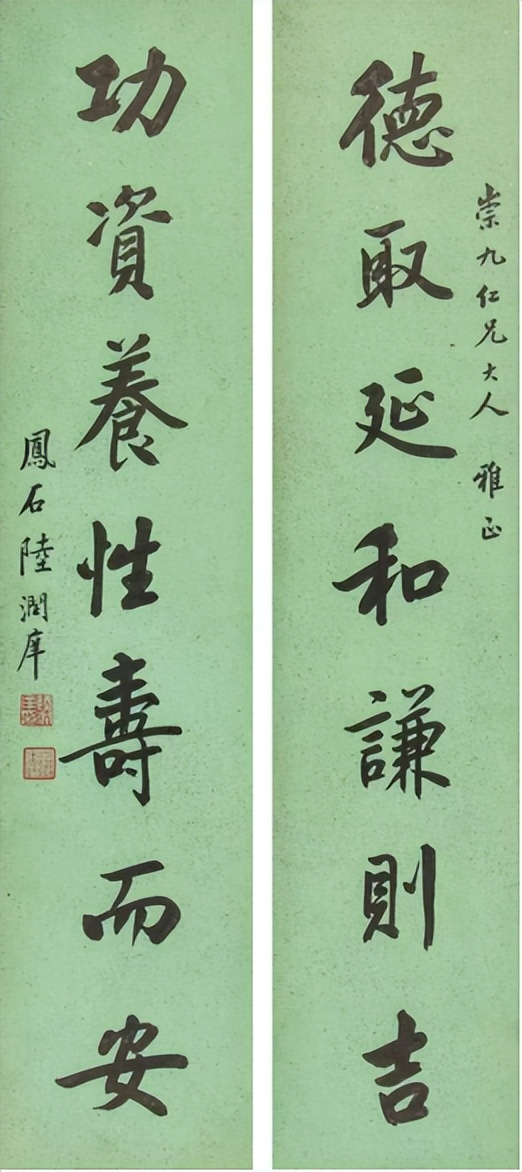 崇九仁兄大人 雅正
德取延和謙則吉
功資養性壽而安
鳳石陸潤庠